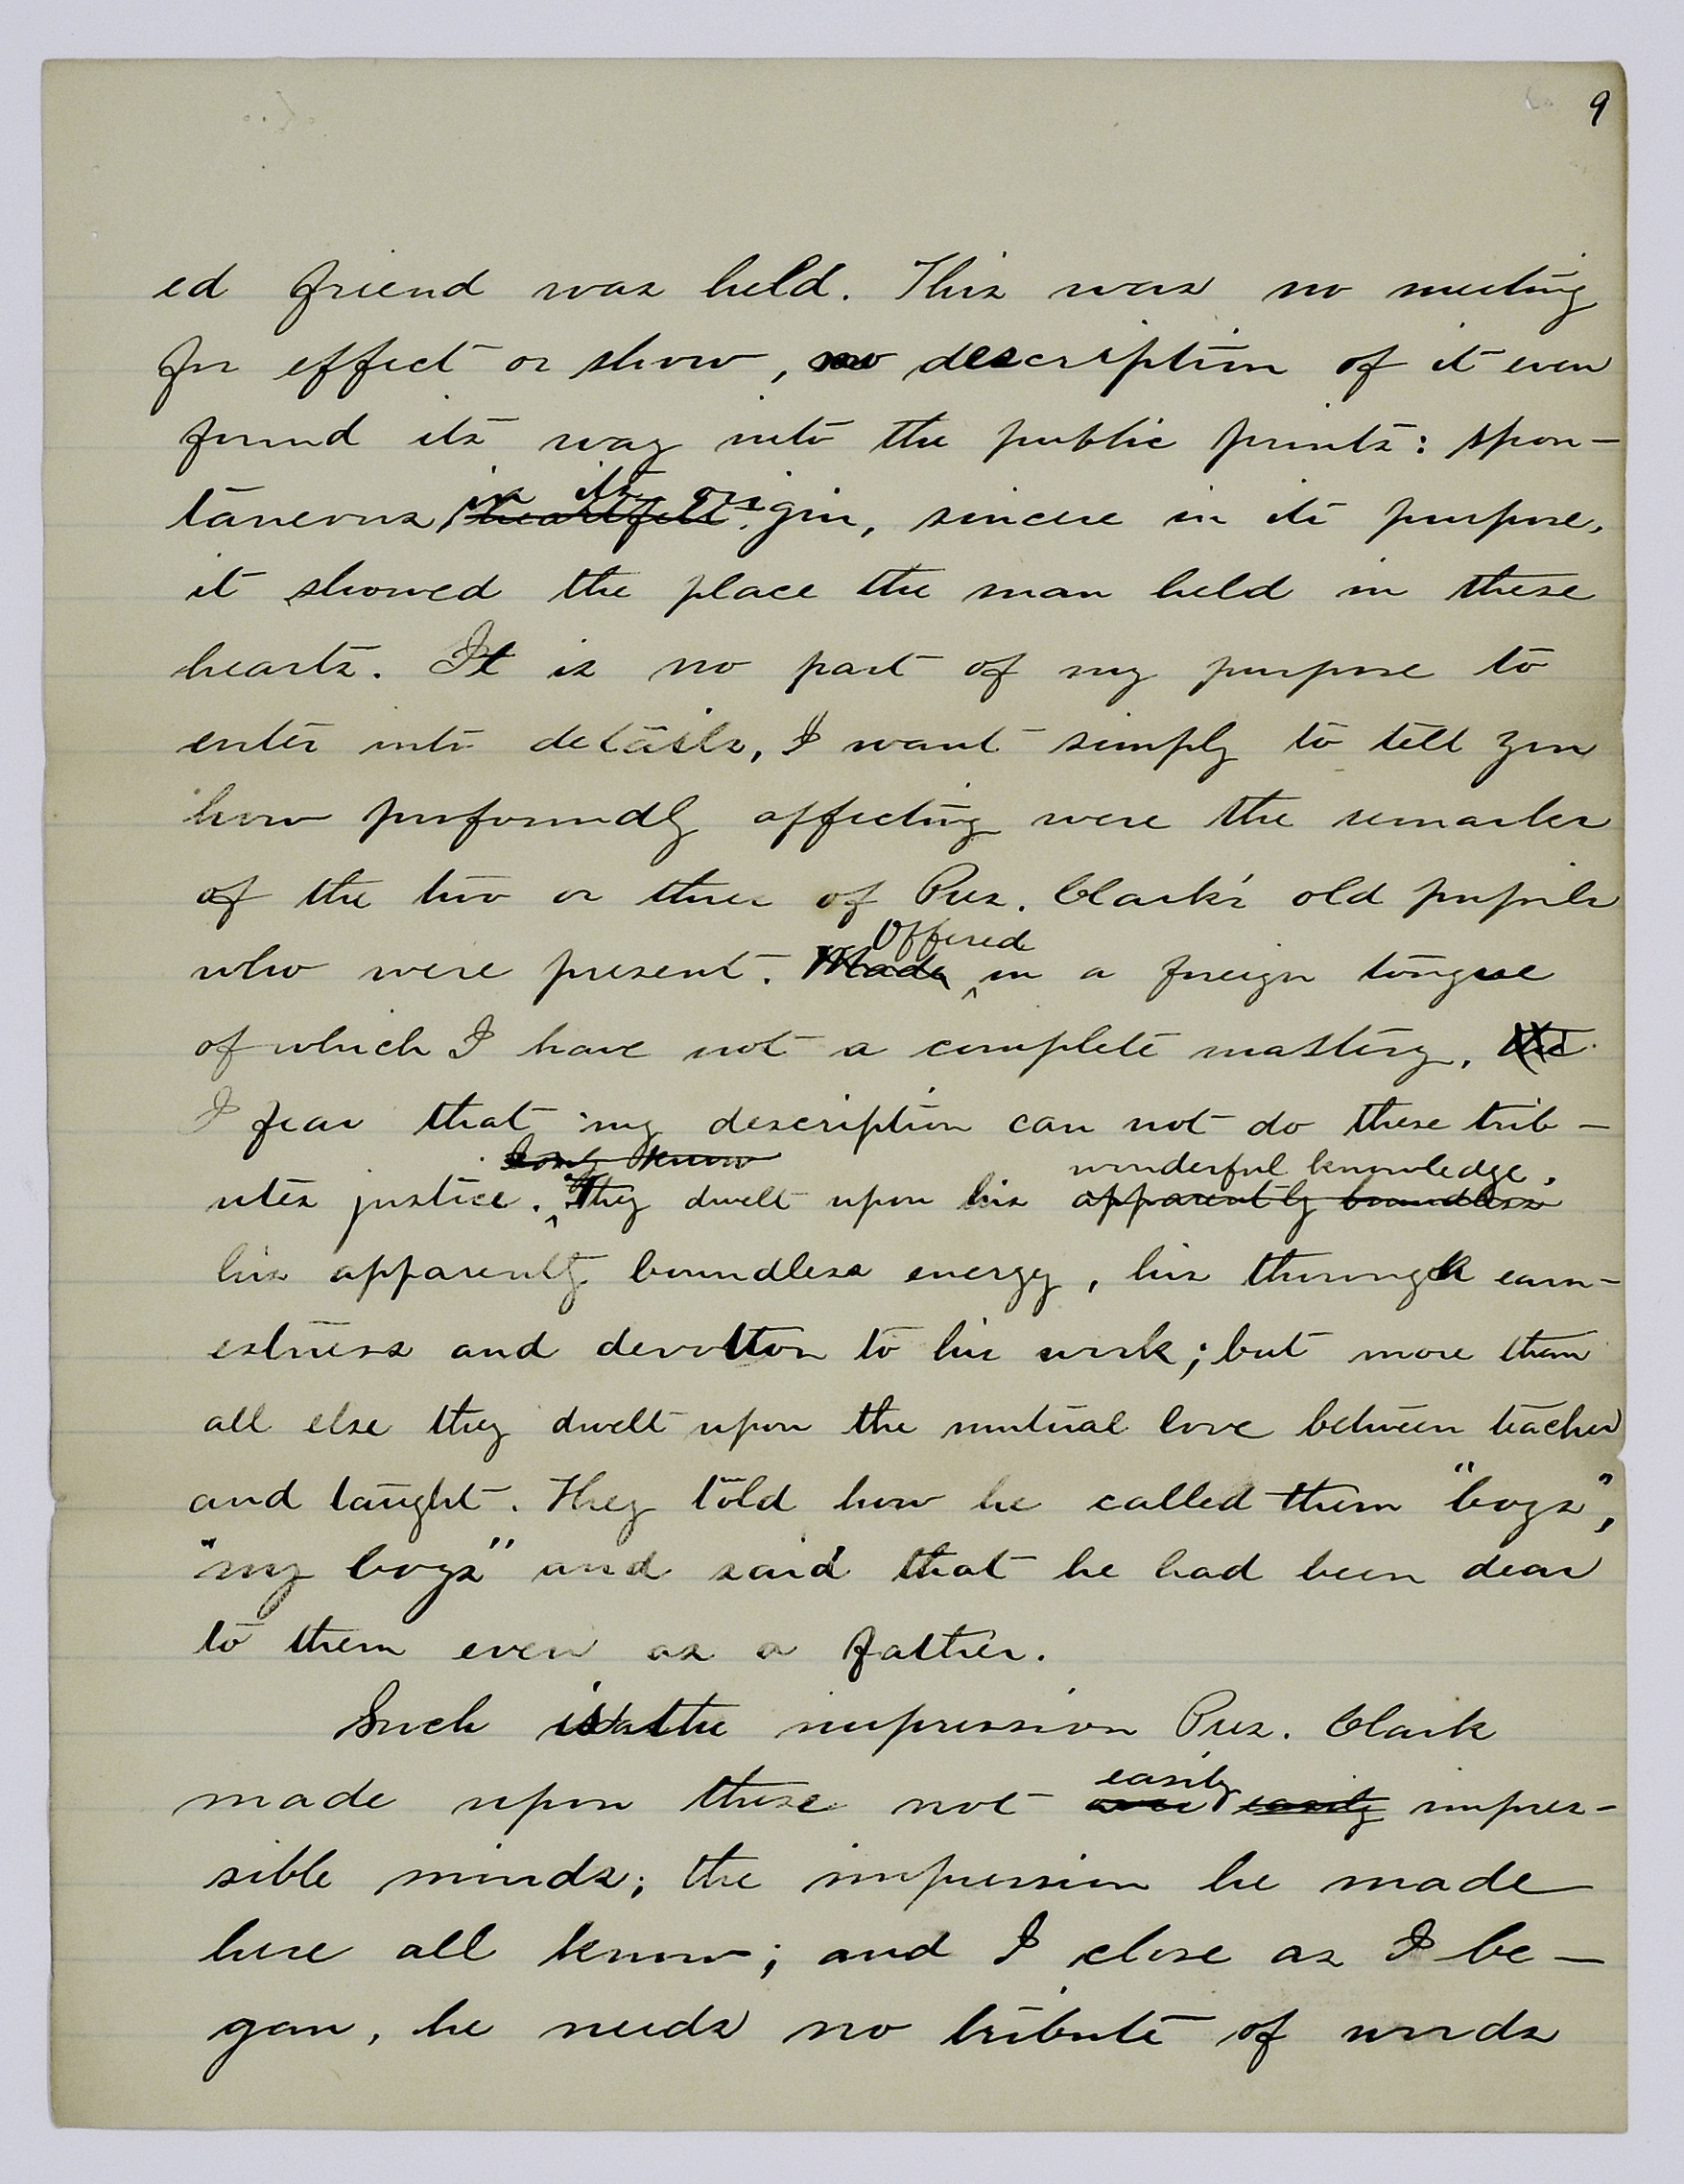 9
ed friend was held. This was no meeting
for effect or show, no description of it even
found its way into the public prints: spon-
in its ori
taneous, heartfelt gin, sincere in its purpose,
it showed the place the man held in these
hearts. It is no part of my purpose to
enter into details, I want simply to tell you
how profoundly affecting were the remarks
of the two or three of Pres. Clark's old pupils
Offered
who were present. Made in a foreign tongue
of which I have not a complete mastery, the
I fear that my description can not do these trib-
know wonderful knowledge,
utes justice. They dwelt upon his apparently boundless
his apparently boundless energy, his through earn-
estness and devotion to his work; but more than
all else they dwelt upon the mutual love between teacher
and taught. They told how he called them "boys",
"my boys" and said that he had been dear
to them even as a father.
Such is the impression Pres. Clark
easily
made upon these not over easily impres-
sible minds; the impression he made
here all know; and I close as I be-
gan, he needs no tribute of words